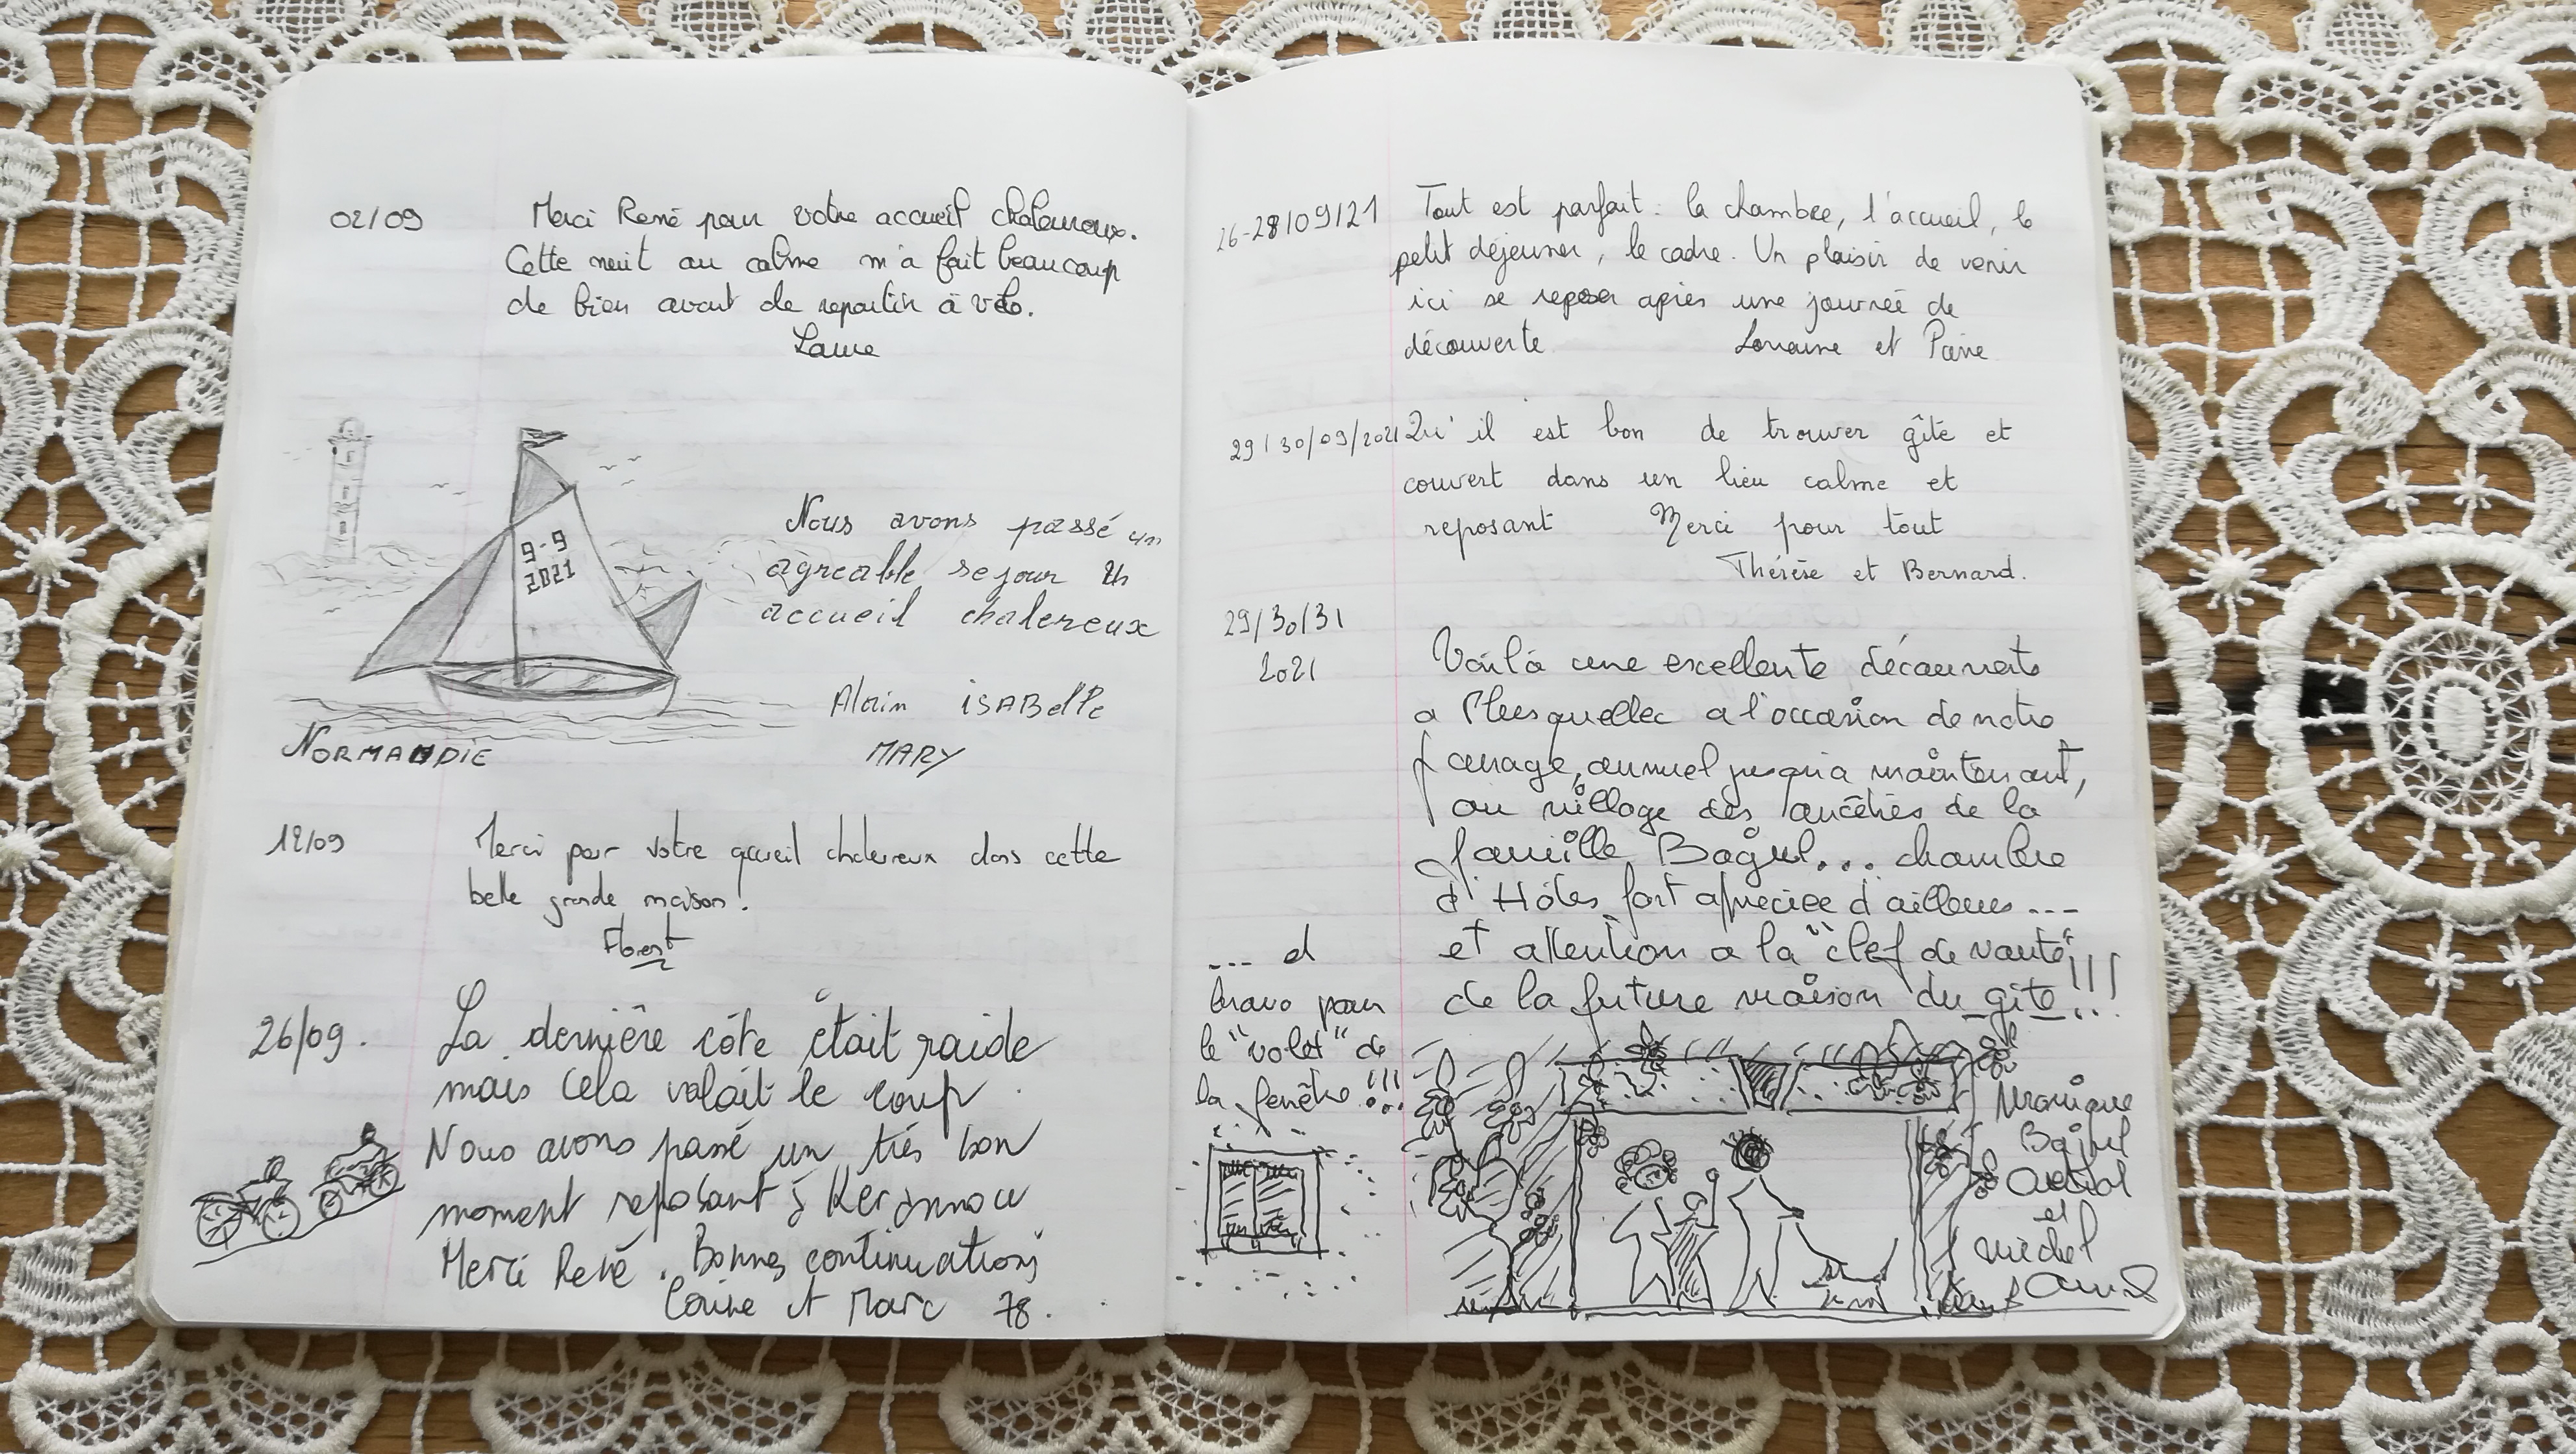 02/09
Merci René pour votre accueil chaleureux.
Cette nuit au calme m'a fait beaucoup
de bien avant de repartir à vélo.
Laure
9-9
2021
Nous avons passé un
agreable sejour Un
accueil chalereux
Alain ISABElle
MARY
NORMANDIE
12/09
Merci pour votre accueil chaleureux dans cette
belle grande maison !
26/09.
La dernière côte était raide
mais cela valait le coup
Nous avons passé un très bon
moment reposant à
Merci René. Bonnes continuations
et Marc 78.
26-28/09/21
Tout est parfait : la chambre, l'accueil, le
petit déjeuner, le cadre. Un plaisir de venir
ici se reposer après une journée de
découverte
Lorraine et
29/30/09/2021
Qu'il est bon de trouver gîte et
couvert dans un lieu calme et
reposant Merci pour tout
Thérèse et Bernard.
29/30/31
2021
Voilà une excellente découverte
a Plusquellec a l'occasion de notre
annuel jusqu'a maintenant,
au village des ancêtres de la
famille ... chambre
d'Hôtes fort apreciee d'ailleurs ...
et attention a la "clef de voute"
de la future maison du gite !!!
... et
bravo pour
le "volet" de
la fenêtre !!!
Monique
et
Michel